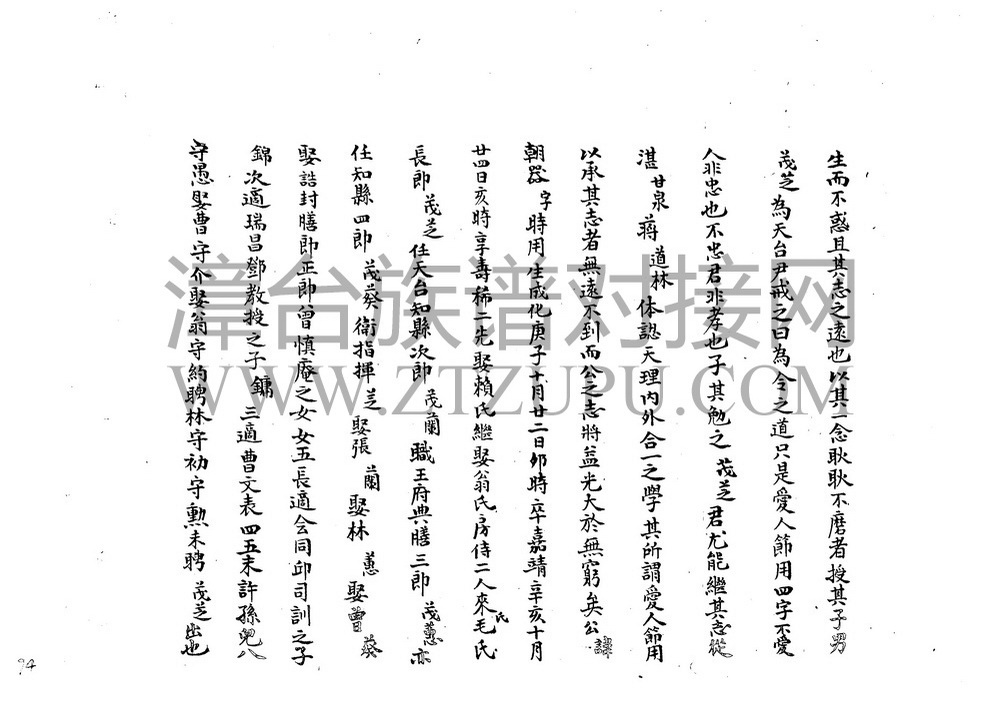 生而不惑且其志之遠也以其一念耿耿不磨者授其子男
茂芝為天台尹戒之曰為令之道只是愛人節用四字不愛
人非忠也不忠君非孝也子其勉之茂芝君尤能繼其志從
湛甘泉蔣道林体認天理内外合一之學其所謂愛人節用
以承其志者無遠不到而公之志將益光大於無窮矣公諱
朝器字時用生成化庚子十月廿二日卯時卒嘉靖辛亥十月
廿四日亥時享壽稀二先娶賴氏繼娶翁氏房侍二人來氏毛氏
長郎茂芝任天台知縣次郎茂蘭職王府典膳三郎茂蕙亦
任知縣四郎茂葵衛指揮芝娶張蘭娶林蕙娶曾葵
娶誥封膳郎正郎曾慎庵之女女五長適会同邱司訓之子
錦次適瑞昌鄧教授之子鏞三適曹文表四五未許孫兒八
守愚娶曹守介娶翁守約聘林守初守勲未聘茂芝出也
漳台族谱对接网
WWW.ZTZUPU.COM
94